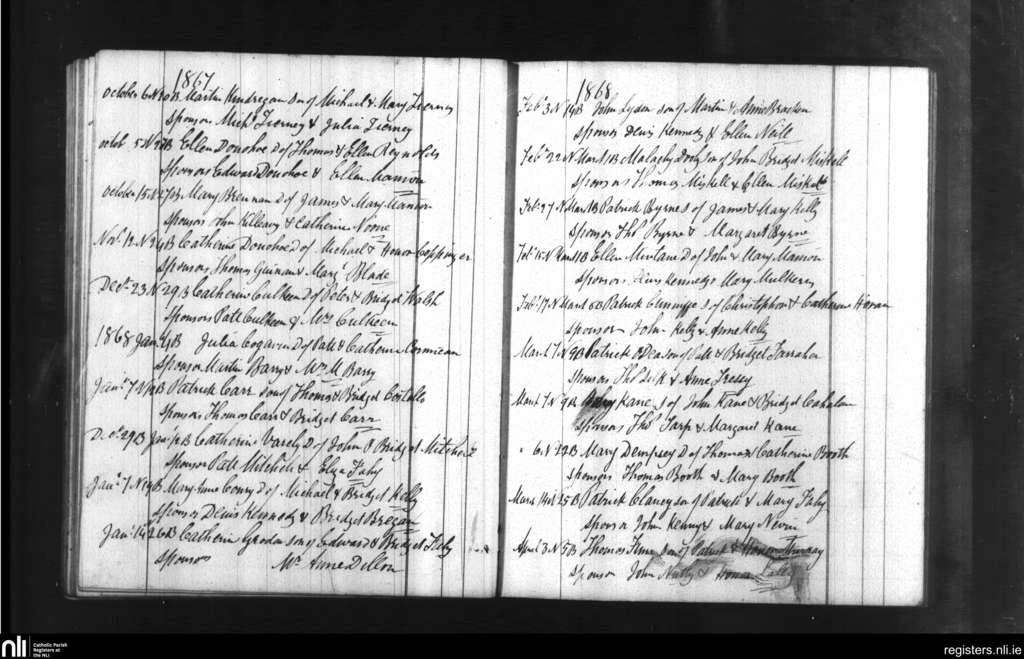 1867
October 6 N 10 B Martin Hindregan son of Michael & Mary Tierney
Sponsors Mich Tierney & Julia Tierney
Octob 5 N B Ellen Donohoe D of Thomas & Ellen Reynolds
Sponsors Edward Donohoe & Ellen Mannion
October 15 N 27 B Mary Brennan D of James & Mary Mannion
Sponsors John Killeavy & Catherine Noone
Novr 12 N B Catherine Donohoe D of Michael & Honor Coppinger
Sponsors Thomas Guinan & Marg Blade
Decr 23 N 29 B Catherine Culkeen D of Peter & Bridget Walsh
Sponsors Patt Culkeen & Mrs Culkeen
1868 Jan B Julia Cogaven D of Patt & Catherine Cormican
Sponsor Martin Barry & Mrs M Barry
Jany 7 N B Patrick Carr son of Thomas & Bridget Costello
Sponsors Thomas Carr & Bridget Carr
Decr 29 B Jan B Catherine Varely D of John & Bridget Mitchell
Sponsor Patt Mitchell & Eliza Fahy
Jany 7 N 19 B Mary Anne Conry D of Michael & Bridget Kelly
Sponsor Denis Kennedy & Bridget Bregan
Jany 14 26 B Catherin son of Edward & Bridget
Sponsors Mrs Anne Dillon
1868
Feby 3 N 19 B John Lydon son of Martin & Anne Bracken
Sponsor Denis Kennedy & Ellen Neill
Feby 22 N March 1 B Malachy son of John Bridget Miskell
Sponsors Thomas Miskell & Ellen Miskell
Feb 27 N Mar 1 B Patrick Byrne S of James & Mary Kelly
Sponsor Ths Byrne & Margaret Byrne
Feb 15 N Mar 1 B Ellen D of John & Mary Mannion
Sponsors Denis Kennedy & Mary Mulkern
Feby 17 N March B Patrick S of Christopher & Catherine Horan
Sponsor John Kelly & Anne Kelly
March 7 N 9 B Patrick O Dea son of Patt & Bridget Farraher
Sponsors Ths & Anne Tressy
March 7 N 9 B Mary Kane D of John Kane & Bridget Cahalan
Sponsors Ths Tarp & Margaret Kane
" 6 N 22 B Mary Dempsey D of Thomas & Catherine Booth
Sponsors Thomas Booth & Mary Booth
March 14 N 25 B Patrick Clancy son of Patrick & Mary Fahy
Sponsor John Kenny & Mary Nevin
April 3 N 5 B Thomas son of Patrick & Honor Murray
Sponsor John & Honor
nli
Catholic Parish
Registers at
the NLI
registers.nli.ie